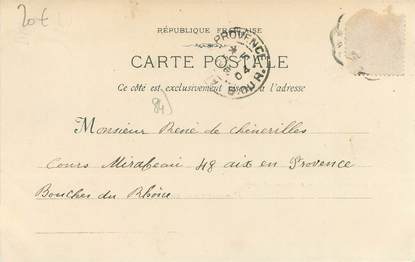 20€
RÉPUBLIQUE FRANÇAISE
CARTE POSTALE
Ce côté est exclusivement réservé à l'adresse
PROVENCE
04
B. DU R.
84)
Monsieur René de Chénerilles
Cours Mirabeau 48 aix en Provence
Bouches du Rhône